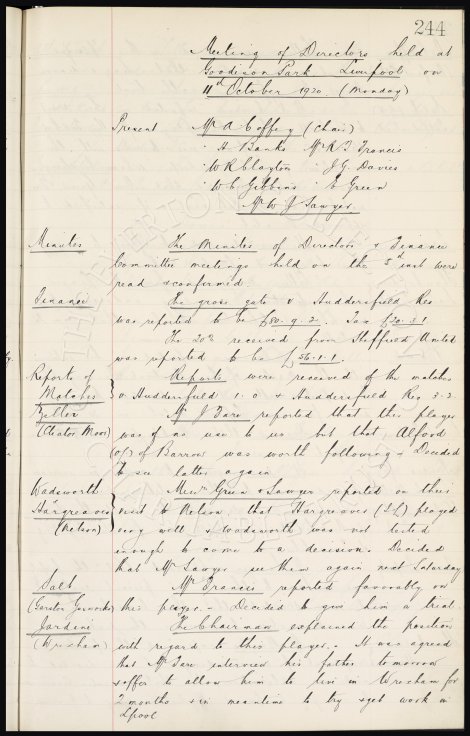 244
Meeting of Directors held at
Goodison Park Liverpool on
11th October 1920. (Monday)
Present Mr A Coffey (Chair)
" H Banks Mr R. Francis
" W R Clayton " J G. Davies
" W C Gibbins " E Green
Mr W J Sawyer.
Minutes The Minutes of Directors & Finance
Committee meetings held on the 5th inst were
read & confirmed.
Finance The gross gate v Huddersfield Res
was reported to be £80.9.2. Tax £20.3.1
The 20% received from Sheffield United
was reported to be £56.1.1.
Reports of Matches Reports were received of the matches
v Huddersfield 1.0 & Huddersfield Res 3.2
Mr J Fare reported that this player
(Cleator Moor) was of no use to us but that Alford
(o/3 of Barrow was worth following & Decided
to see latter again
Wadsworth Messrs Green & Sawyer reported on their
Hargreaves visit to Nelson that Hargreaves played
(Nelson) very well & Wadsworth was not tested
enough to come to a decision. Decided
that Mr Sawyer see them again next Saturday
Salt Mr Francis reported favorably on
(Garston Gasworks) this player. Decided to give him a trial.
Jardine The Chairman explained the position
(Wrexham) with regard to this player. It was agreed
that Mr Fare interview his father tomorrow
& offer to allow him to live in Wrexham for
2 months & in meantime to try & get work in
Lpool